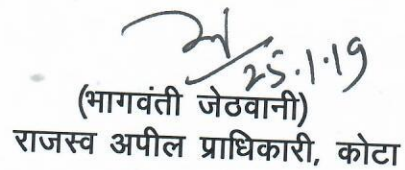 25.1.19
(भागवंती जेठवानी)
राजस्व अपील प्राधिकारी, कोटा